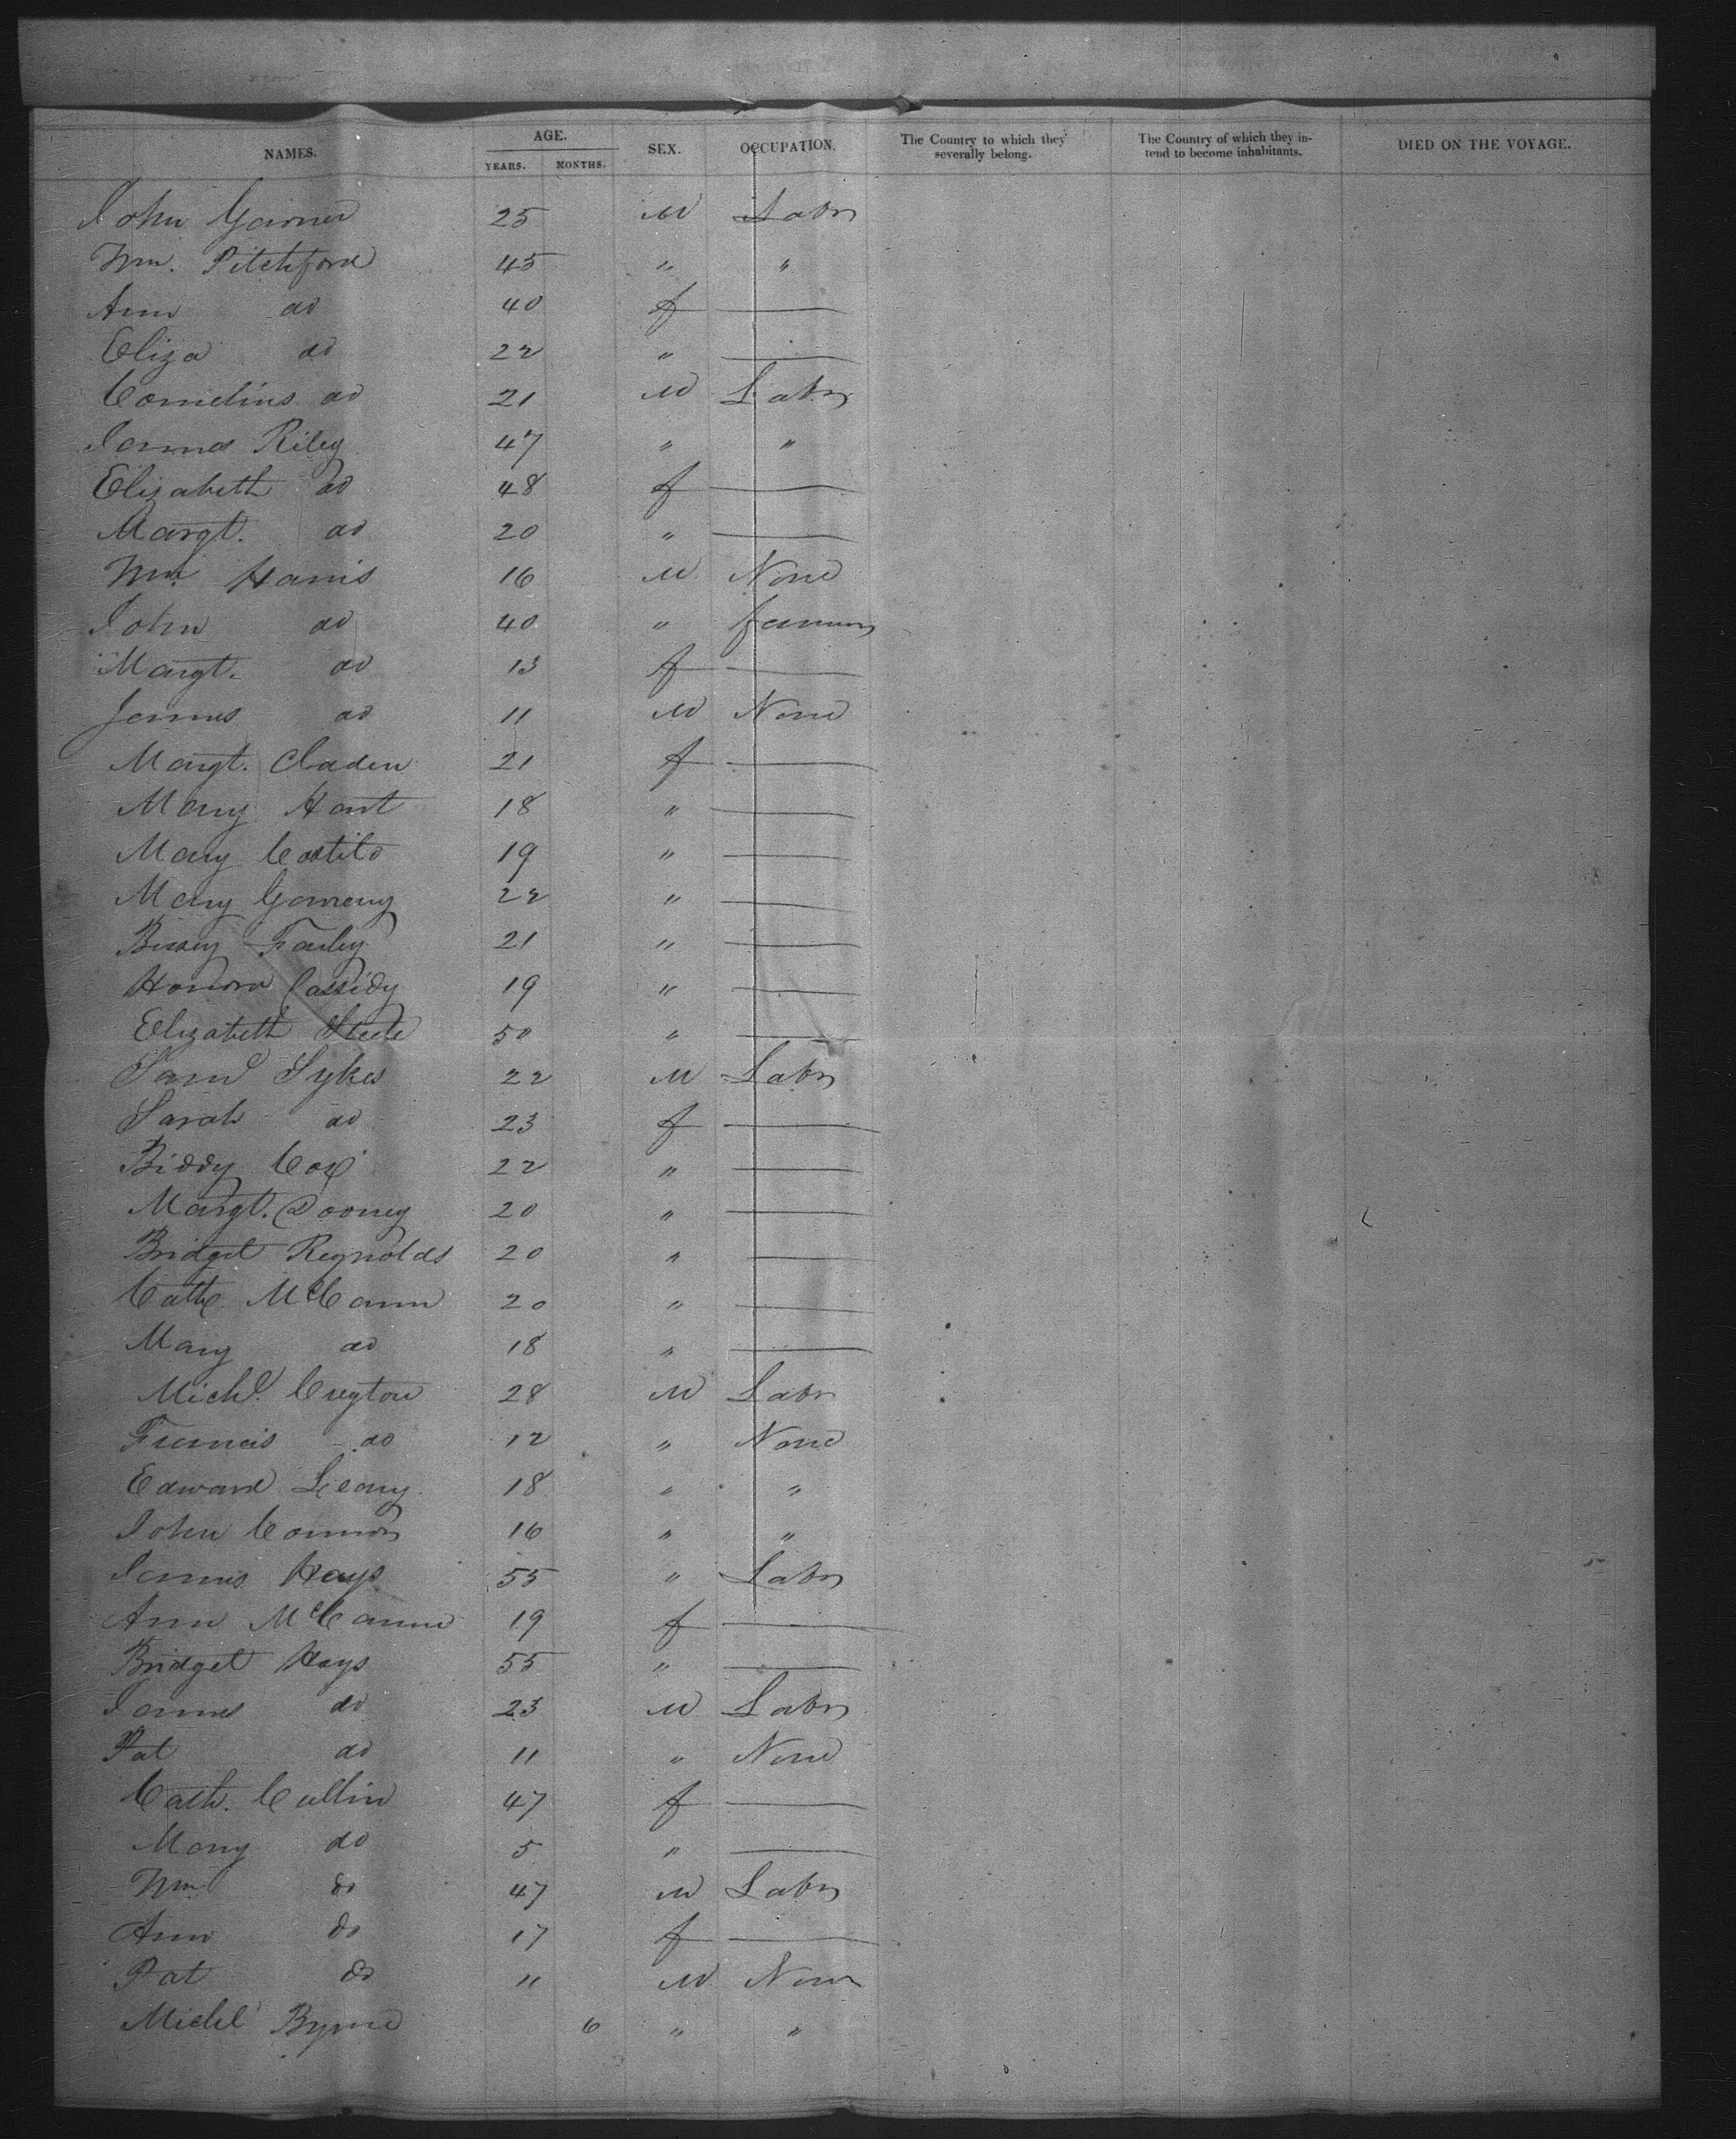 NAMES. AGE. YEARS. MONTHS. SEX. OCCUPATION. The Country to which they severally belong. The Country of which they in-tend to become inhabitants. DIED ON THE VOYAGE.
John Garner 25 M Labr
Wm. Pitchford 45 " "
Ann do 40 f —
Eliza do 22 " —
Cornelius do 21 M Labr
James Riley 47 " "
Elizabeth do 48 f —
Margt. do 20 " —
Wm. Harris 16 M None
John do 40 " farmer
Margt. do 13 f —
James do 11 M None
Margt. Claden 21 f —
Mary Hart 18 " —
Mary Costilo 19 " —
Mary 22 " —
Farley 21 " —
Honora Cassidy 19 " —
Elizabeth Steele 50 " —
Saml Sykes 22 M Labr
Sarah do 23 f —
Biddy Cox 22 " —
Margt. Dooney 20 " —
Bridget Reynolds 20 " —
Cathe. McCann 20 " —
Mary do 18 " —
Michl. Cregton 28 M Labr
Francis do 12 " None
Edward Leary 18 " "
John Connor 16 " "
James Hays 55 " Labr
Ann McCann 19 f —
Bridget Hays 55 " —
James do 23 M Labr
Pat do 11 " None
Cath. Cullin 47 f —
Mary do 5 " —
Wm do 47 M Labr
Ann do 17 f —
Pat do 11 M None
Michl Byrne 6 " "